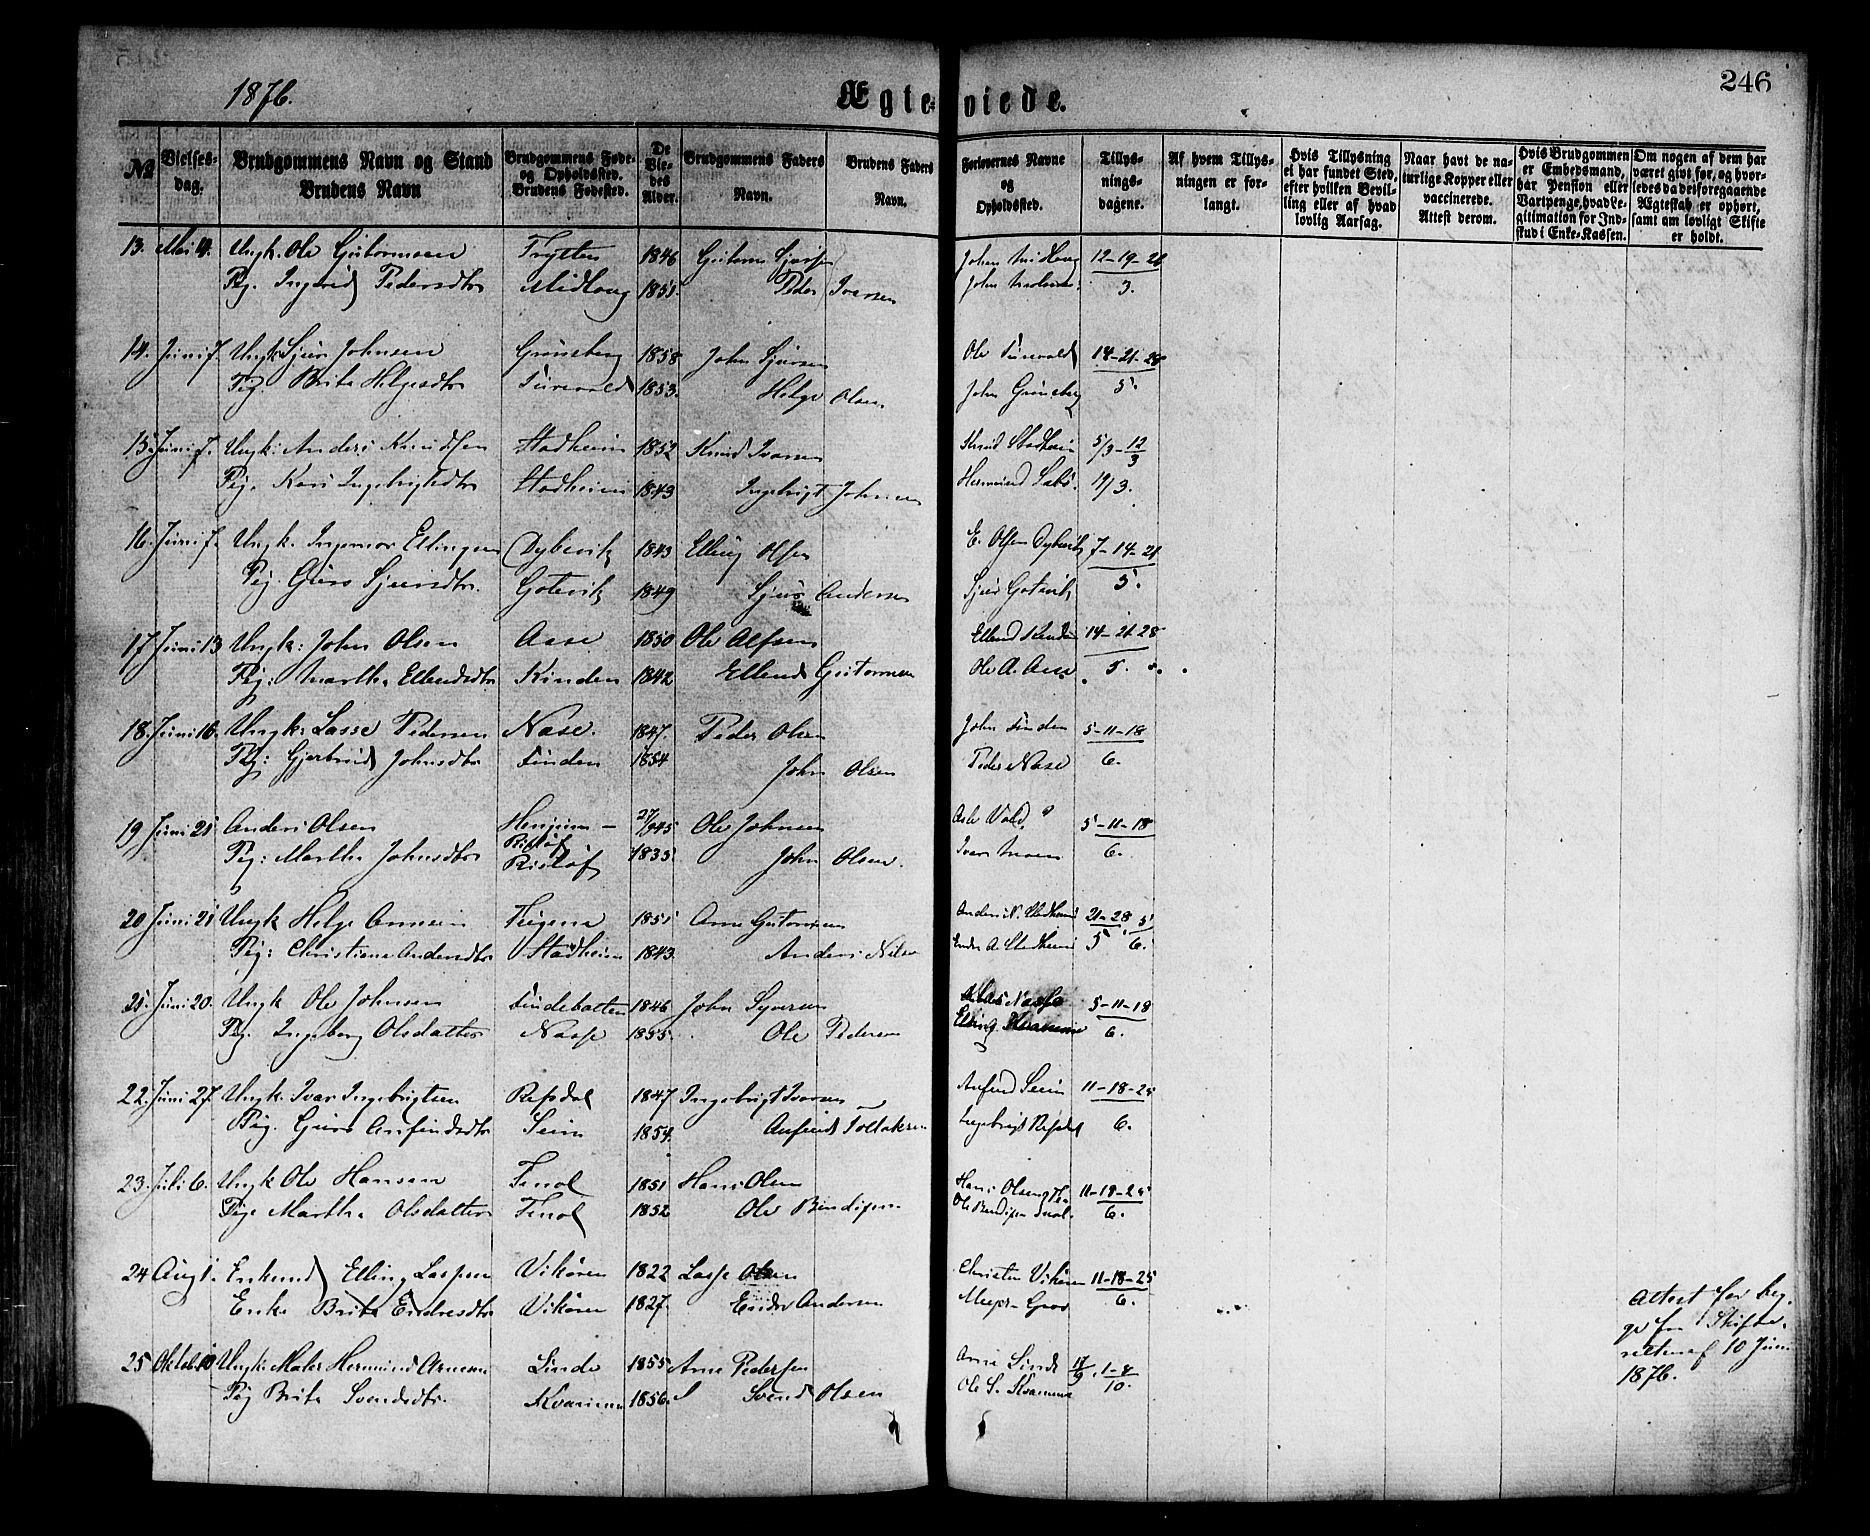 246
1876.
Ægteviede.
No
Vielses-dag.
Brudgommens Navn og Stand
Brudens Navn
Brudgommens Føde- og Opholdssted. Brudens Fødested.
De Viedes Alder.
Brudgommens Faders Navn.
Brudens Faders Navn.
Forlovernes Navne og Opholdssted.
Tillysningsdagene.
Af hvem Tillysningen er forlangt.
Hvis Tillysning ei har fundet Sted, efter hvilken Bevilling eller af hvad lovlig Aarsag.
Naar havt de naturlige Kopper eller vaccinerede. Attest derom.
Hvis Brudgommen er Embedsmand, har Pension eller Vartpenge, hvad Legitimation for Indskud i Enke-Kassen.
Om nogen af dem har været gift før, og hvorledes da det foregaaende Ægteskab er ophørt, samt om lovligt Skifte er holdt.
13. Mai 4. Ungk. Ole Guttormsen Trytten 1846 Guttorm 12-19-26
Pig. Ingerid Pedersdtr Midlang 1851. Peder Iversen John 3.
14. Juni 7. Ungk. Sjur Johnsen Grønsberg 1858 John Sjursen Ole 14-21-28
Pig. Brita Helgesdtr 1853. Helge Olsen John Grønsberg 5.
15. Juni 7. Ungk. Anders Knudsen Stadheim 1852 Knud Ivarsen Knud Stadheim 5/3-12/3
Pig. Kari Ingebrigtsdtr Stadheim 1849 Ingebrigt Johnsen Hermund 19/3.
16. Juni 7. Ungk. Ingemar Ellingsen Dybevik 1843 Elling Olsen E. Olsen Dybevik 7-14-21
Pig Guro Sjursdtr. Gotevik 1849 Sjur Andersen Sjur Gotevik 5.
17. Juni 13 Ungk: John Olsen Aase 1850 Ole Alfsen Ellend Kinden 14-21-28
Pig: Martha Ellendsdtr Kinden 1842 Ellend Guttormsen Ole A. Aase 5.
18. Juni 16. Ungk: Lasse Pedersen Nase. 1847. Peder Olsen John Finden 5-11-18
Pig: Gjertrud Johnsdtr Finden 1854 John Olsen Peder Nase 6.
19 Juni 21 Anders Olsen Henjum- 27/9 45 Ole Johnsen 5-11-18
Ristøf
Pig: Martha Johnsdtr Ristøf 1835 John Olsen. Ivar Moen 6.
20 Juni 21 Ungk Helge Arnesen Feigene 1851 Arne Guttormsen Anders N. Stadheim 21-28 5
Pig: Christiane Andersdtr Stadheim 1843. Anders Nilsen Endre A. Stadheim 5 6.
21. Juni 20. Ungk Ole Johnsen Findebotten 1846 John Syversen 5-11-18
Pig. Ingeborg Olsdatter Nasse 1855. Ole Pedersen Elling 6.
22. Juni 27. Ungk. Ivar Ingebrigtsen Refsdal 1847 Ingebrigt Ivarsen Anfind Seim 11-18-25
Pig. Guro Anfindsdtr Seim 1854. Anfind Tollaksen Ingebrigt Refsdal 6.
23. Juli 6. Ungk Ole Hansen Finol 1851 Hans Olsen Hans Olsen 11-18-25
Pige Martha Olsdatter Finol 1852 Ole Bendixen Ole Bendixen 6.
24 Aug 1. Enkmd Elling Lassesen Vikøren 1822 Lasse Olsen Christen Vikøren 11-18-25
Enke Brita Endresdtr Vikøren 1827. Endre Andersen 6.
Attest for beg.
ge fra Skifte-
retten af 10 Juni
1876.
25 Oktob 10 Ungk: Maler Hermund Arnesen Linde 1855 Arne Pedersen Arne Linde 17/9. 1-8
Pig Brita Svendsdtr. Kvamme 1856. Svend Olsen Ole S. Kvamme 10.